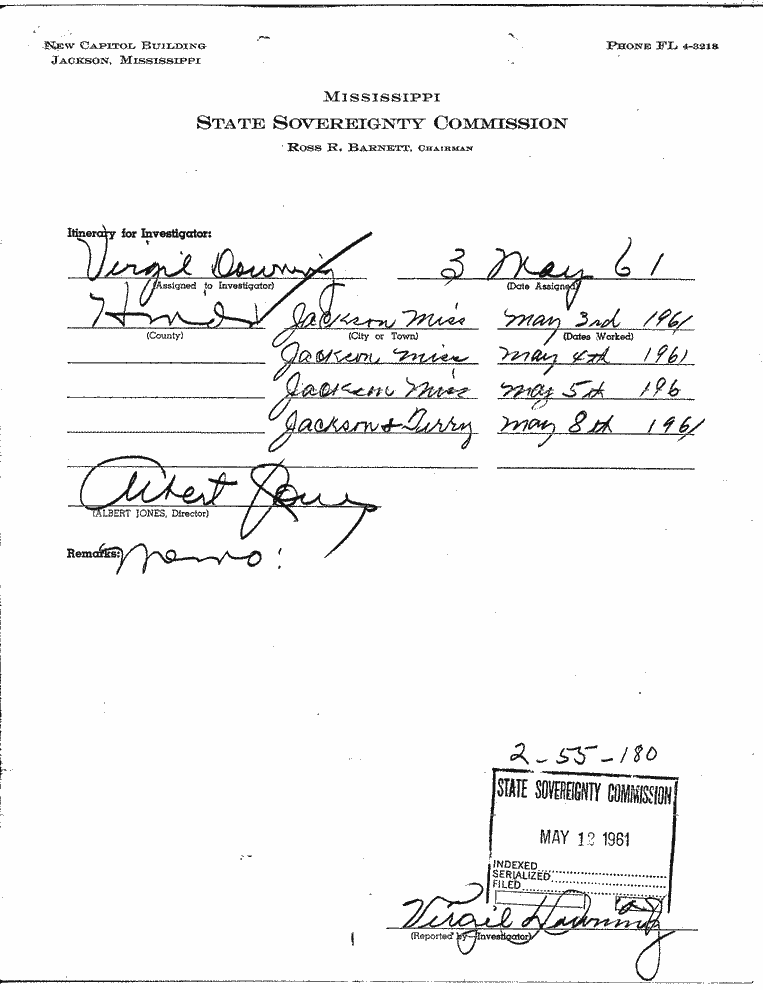 NEW CAPITOL BUILDING
JACKSON, MISSISSIPPI
PHONE FL 4-3218
MISSISSIPPI
STATE SOVEREIGNTY COMMISSION
ROSS R. BARNETT, CHAIRMAN
Itinerary for Investigator:
Virgil Downing 3 May 61
(Assigned to Investigator) (Date Assigned)
Hinds Jackson Miss May 3rd 1961
(County) (City or Town) (Dates Worked)
Jackson Miss May 4th 1961
Jackson Miss May 5th 196
Jackson & Terry May 8th 1961
Albert Jones
(ALBERT JONES, Director)
Remarks: Memo:
2-55-180
STATE SOVEREIGNTY COMMISSION
MAY 12 1961
INDEXED
SERIALIZED
FILED
Virgil Downing
(Reported by Investigator)